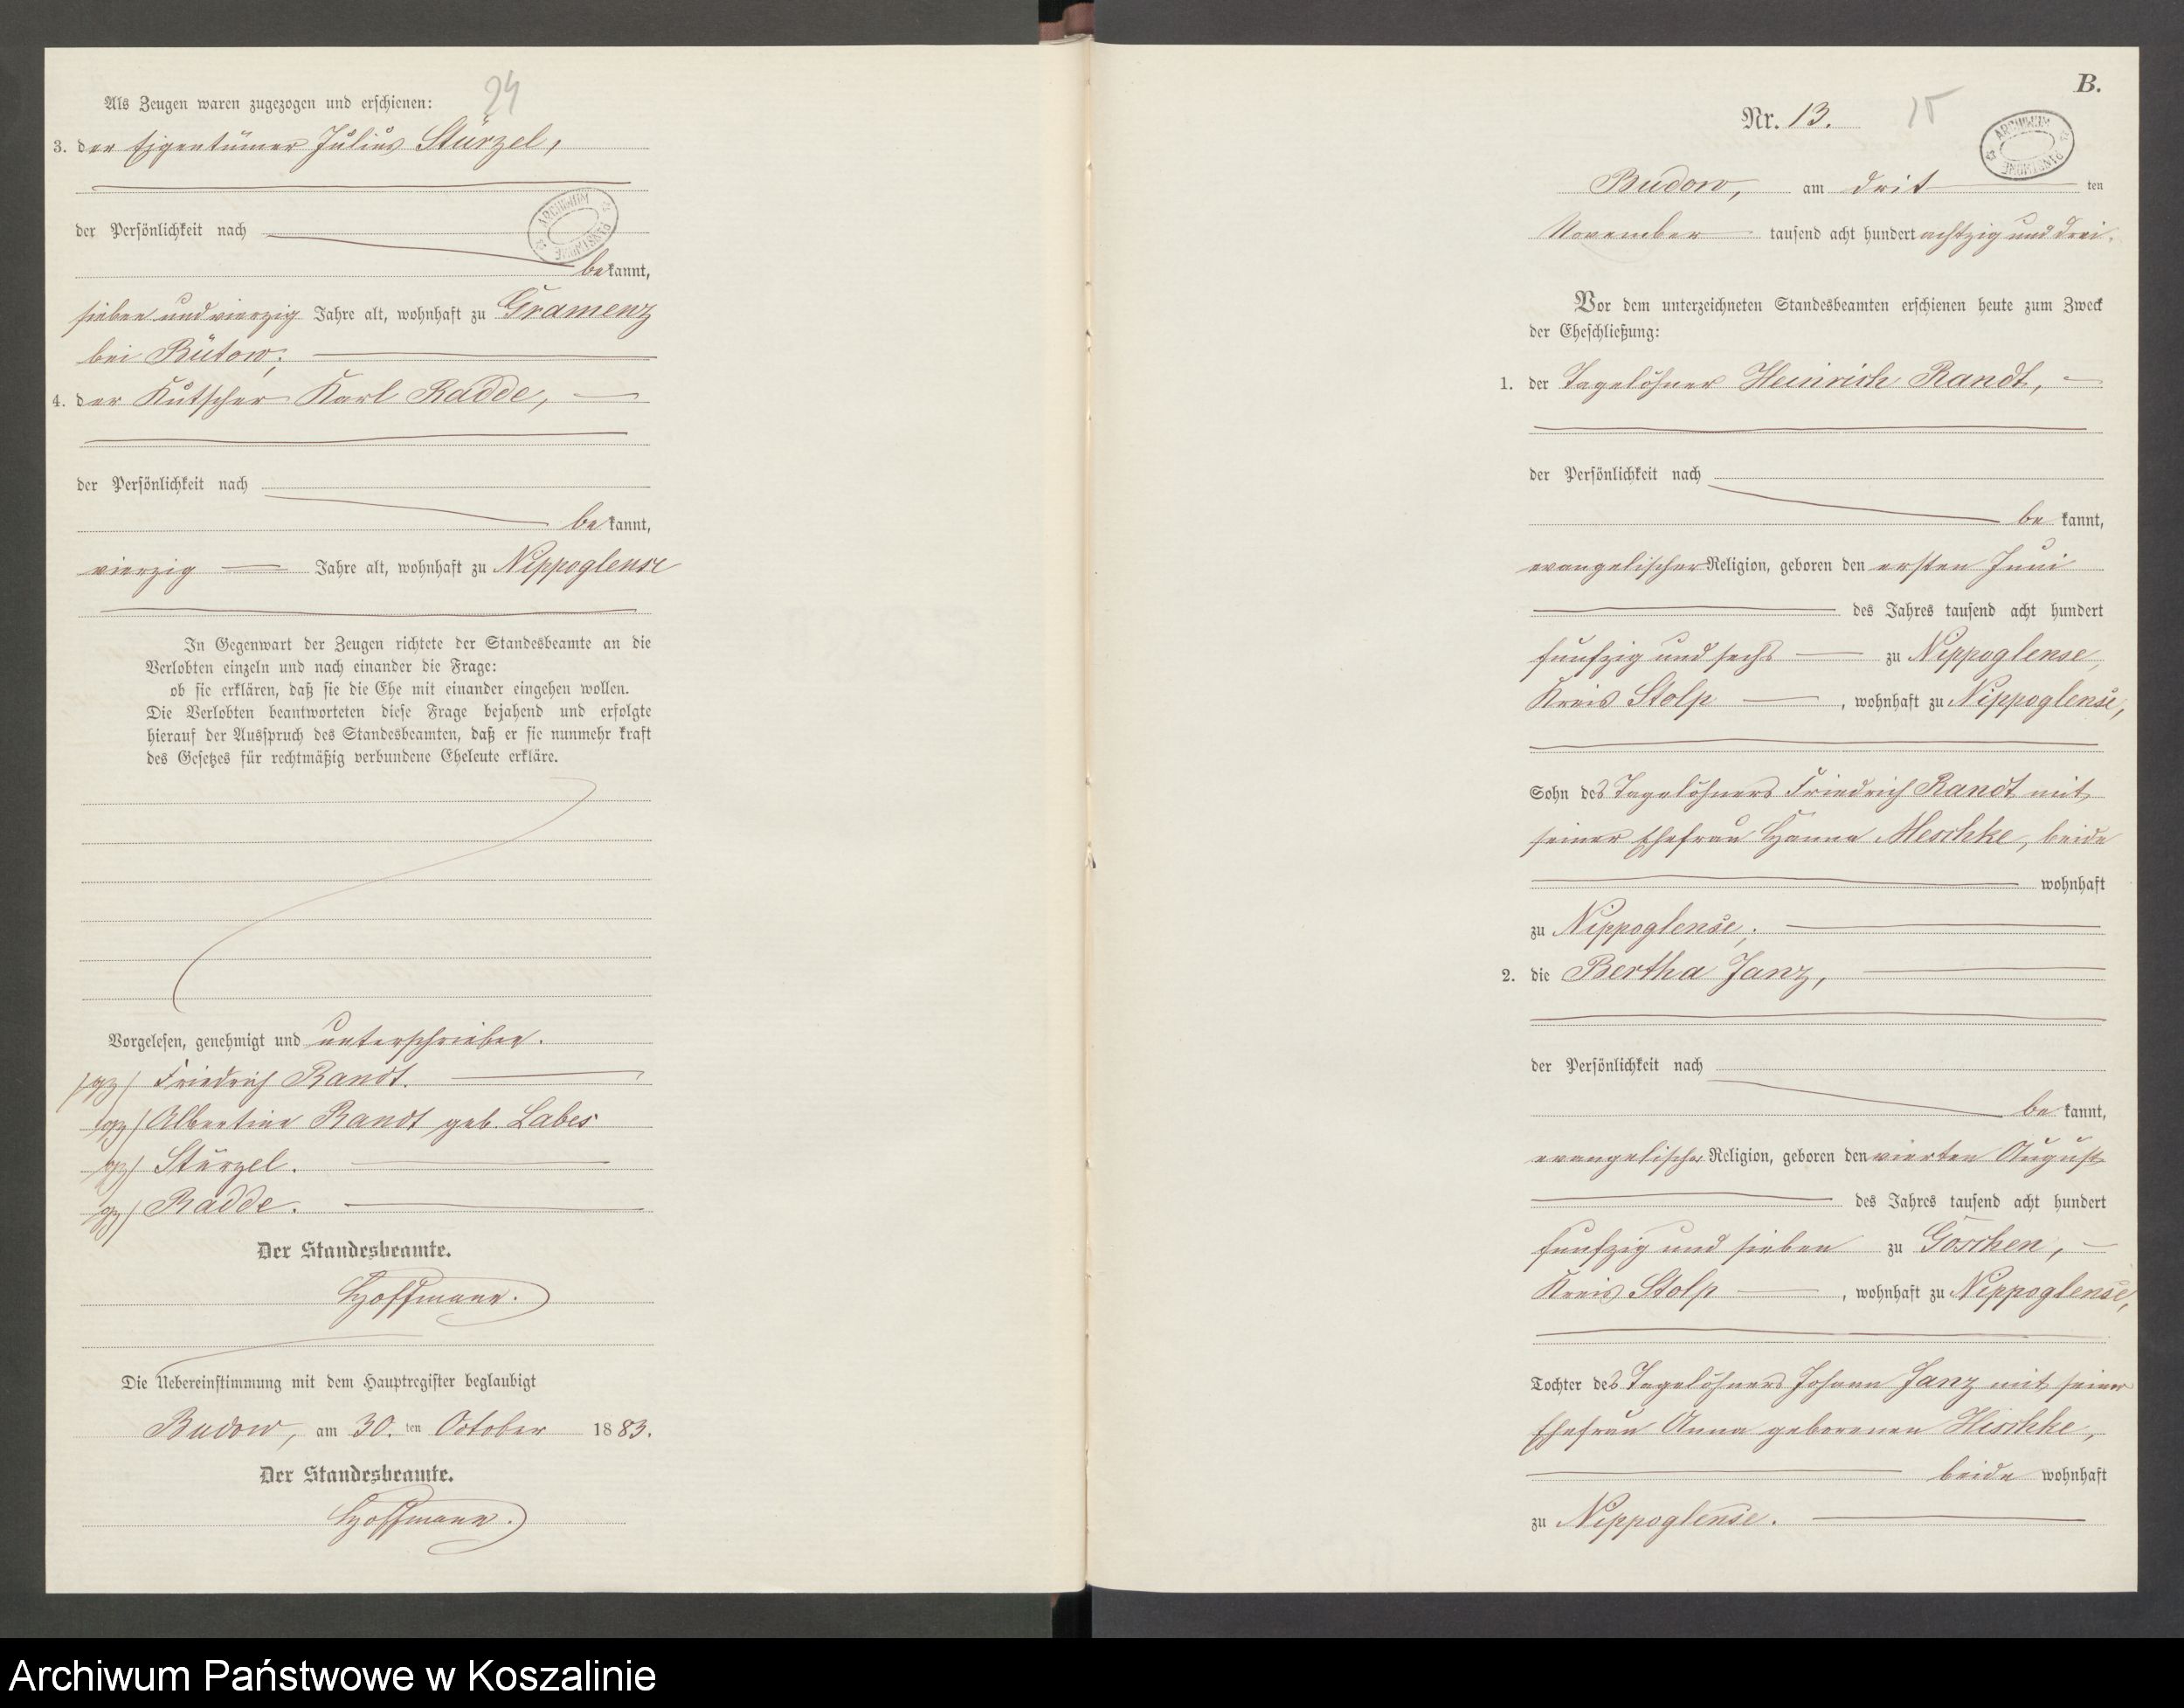 24
Als Zeugen waren zugezogen und erschienen:
3. der Eigentümer Julius Stürzel,
der Persönlichkeit nach
bekannt,
sieben und vierzig Jahre alt, wohnhaft zu Gramenz
bei Bütow;
4. der Kutscher Karl Radde,
der Persönlichkeit nach
bekannt,
vierzig Jahre alt, wohnhaft zu Nippoglense
In Gegenwart der Zeugen richtete der Standesbeamte an die
Verlobten einzeln und nach einander die Frage:
ob sie erklären, daß sie die Ehe mit einander eingehen wollen.
Die Verlobten beantworteten diese Frage bejahend und erfolgte
hierauf der Ausspruch des Standesbeamten, daß er sie nunmehr kraft
des Gesetzes für rechtmäßig verbundene Eheleute erkläre.
Vorgelesen, genehmigt und unterschrieben.
(gz) Friedrich Randt.
(gz) Albertine Randt geb. Labes
(gz) Stürzel.
(gz) Radde.
Der Standesbeamte.
Hoffmann.
Die Uebereinstimmung mit dem Hauptregister beglaubigt
Budow, am 30. ten October 1883.
Der Standesbeamte.
Hoffmann.
B.
Nr. 13. 15
ARCHIWUM PAŃSTWOWE
Budow, am drit ten
November tausend acht hundert achtzig und drei.
Vor dem unterzeichneten Standesbeamten erschienen heute zum Zweck
der Eheschließung:
1. der Tagelöhner Heinrich Randt,
der Persönlichkeit nach
bekannt,
evangelischer Religion, geboren den ersten Juni
des Jahres tausend acht hundert
fünfzig und sechs zu Nippoglense,
Kreis Stolp, wohnhaft zu Nippoglense,
Sohn des Tagelöhners Friedrich Randt mit
seiner Ehefrau Hanna Meschke, beide
wohnhaft
zu Nippoglense;
2. die Bertha Janz,
der Persönlichkeit nach
bekannt,
evangelischer Religion, geboren den vierten August
des Jahres tausend acht hundert
fünfzig und sieben zu Goschen,
Kreis Stolp, wohnhaft zu Nippoglense,
Tochter des Tagelöhners Johann Janz mit seiner
Ehefrau Anna geborenen Hischke,
beide wohnhaft
zu Nippoglense.
Archiwum Państwowe w Koszalinie